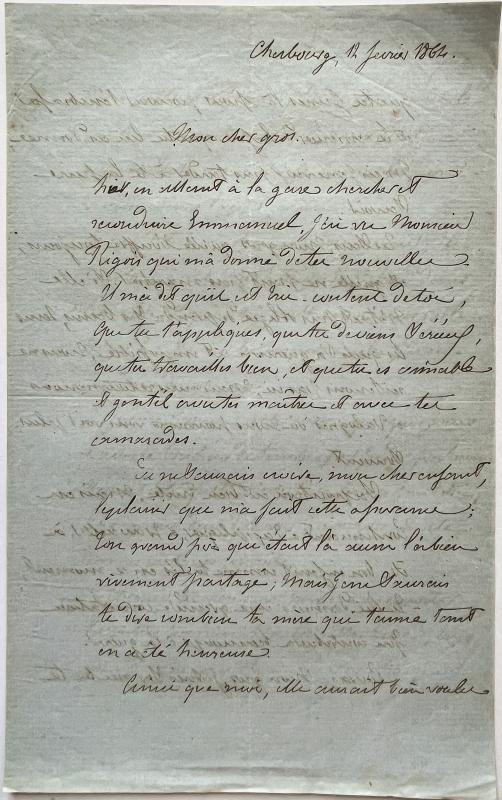 Cherbourg, 12 fevrier 1864.
Mon cher gros.
hier, en allant à la gare chercher et
reconduire Emmanuel, J'ai vu Monsieur
Rigout qui m'a donné de tes nouvelles.
Il m'a dit qu'il est très content de toi,
que tu t'appliques, que tu deviens sérieux,
que tu travailles bien, et que tu es aimable
et gentil avec tes maîtres et avec tes
camarades.
Tu ne saurais croire, mon cher enfant,
le plaisir que m'a fait cette assurance;
ton grand père qui était là aussi l'a bien
vivement partagé; Mais je ne saurais
te dire combien ta mere qui t'aime tant
en a été heureuse.
que moi, elle aurait bien voulu